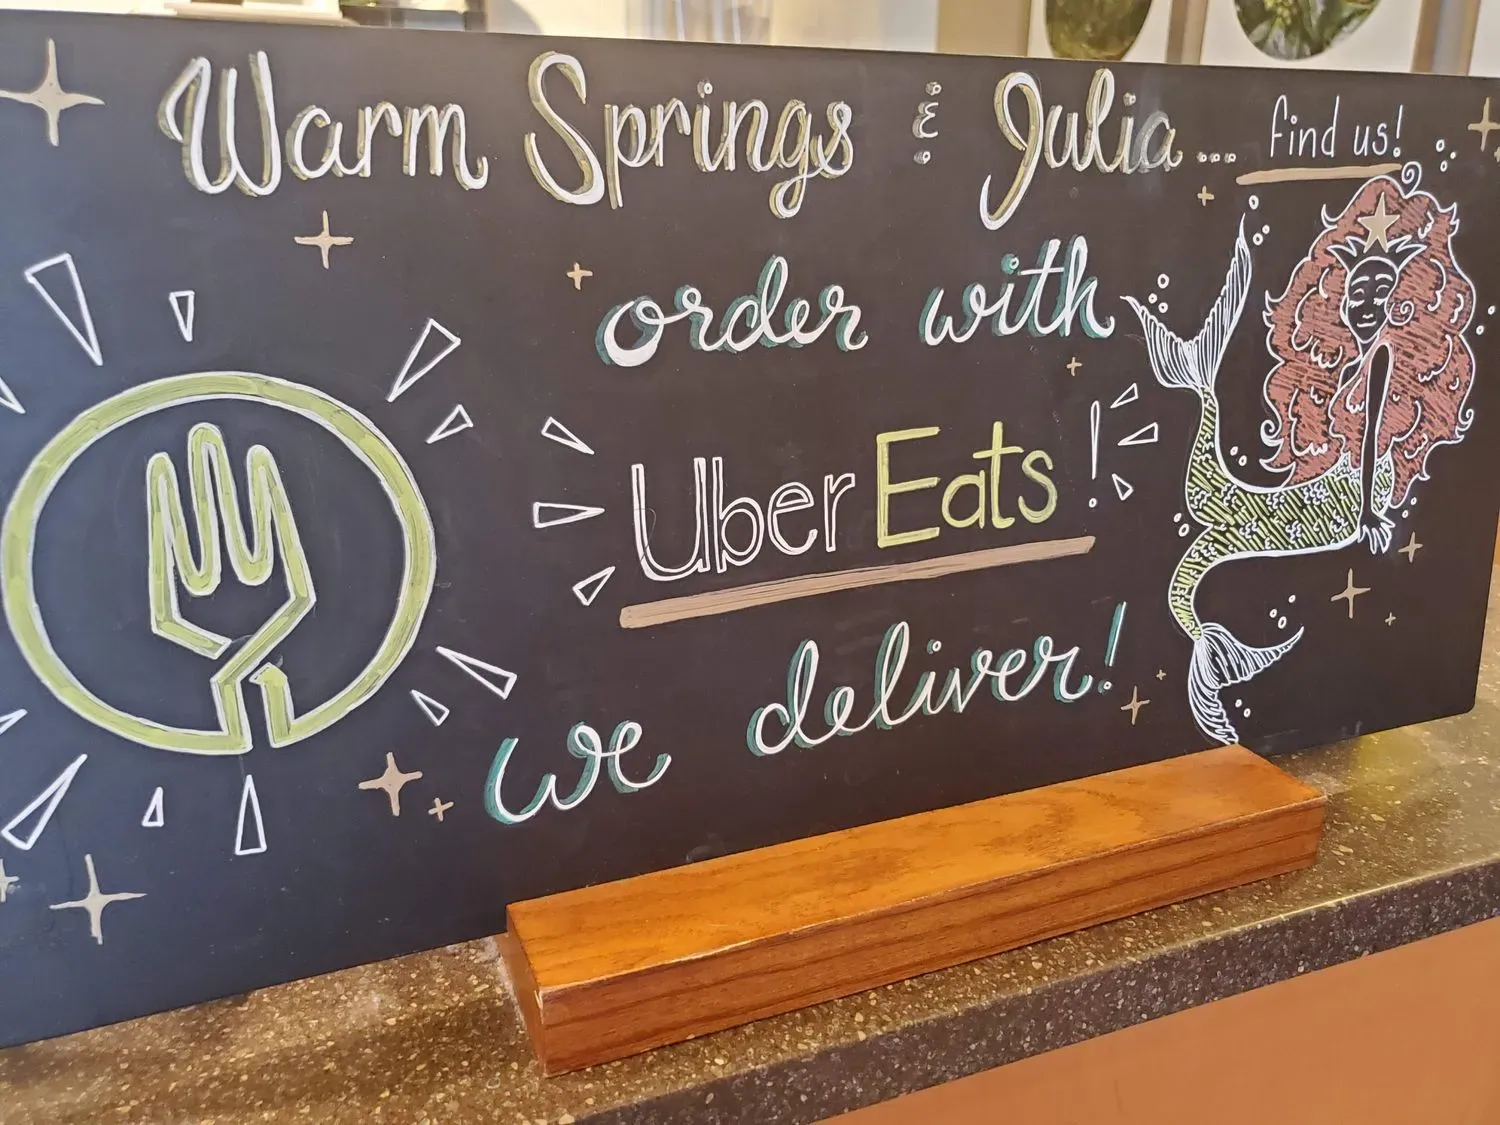 Warm Springs & Julia... find us!
order with
Uber Eats!
we deliver!